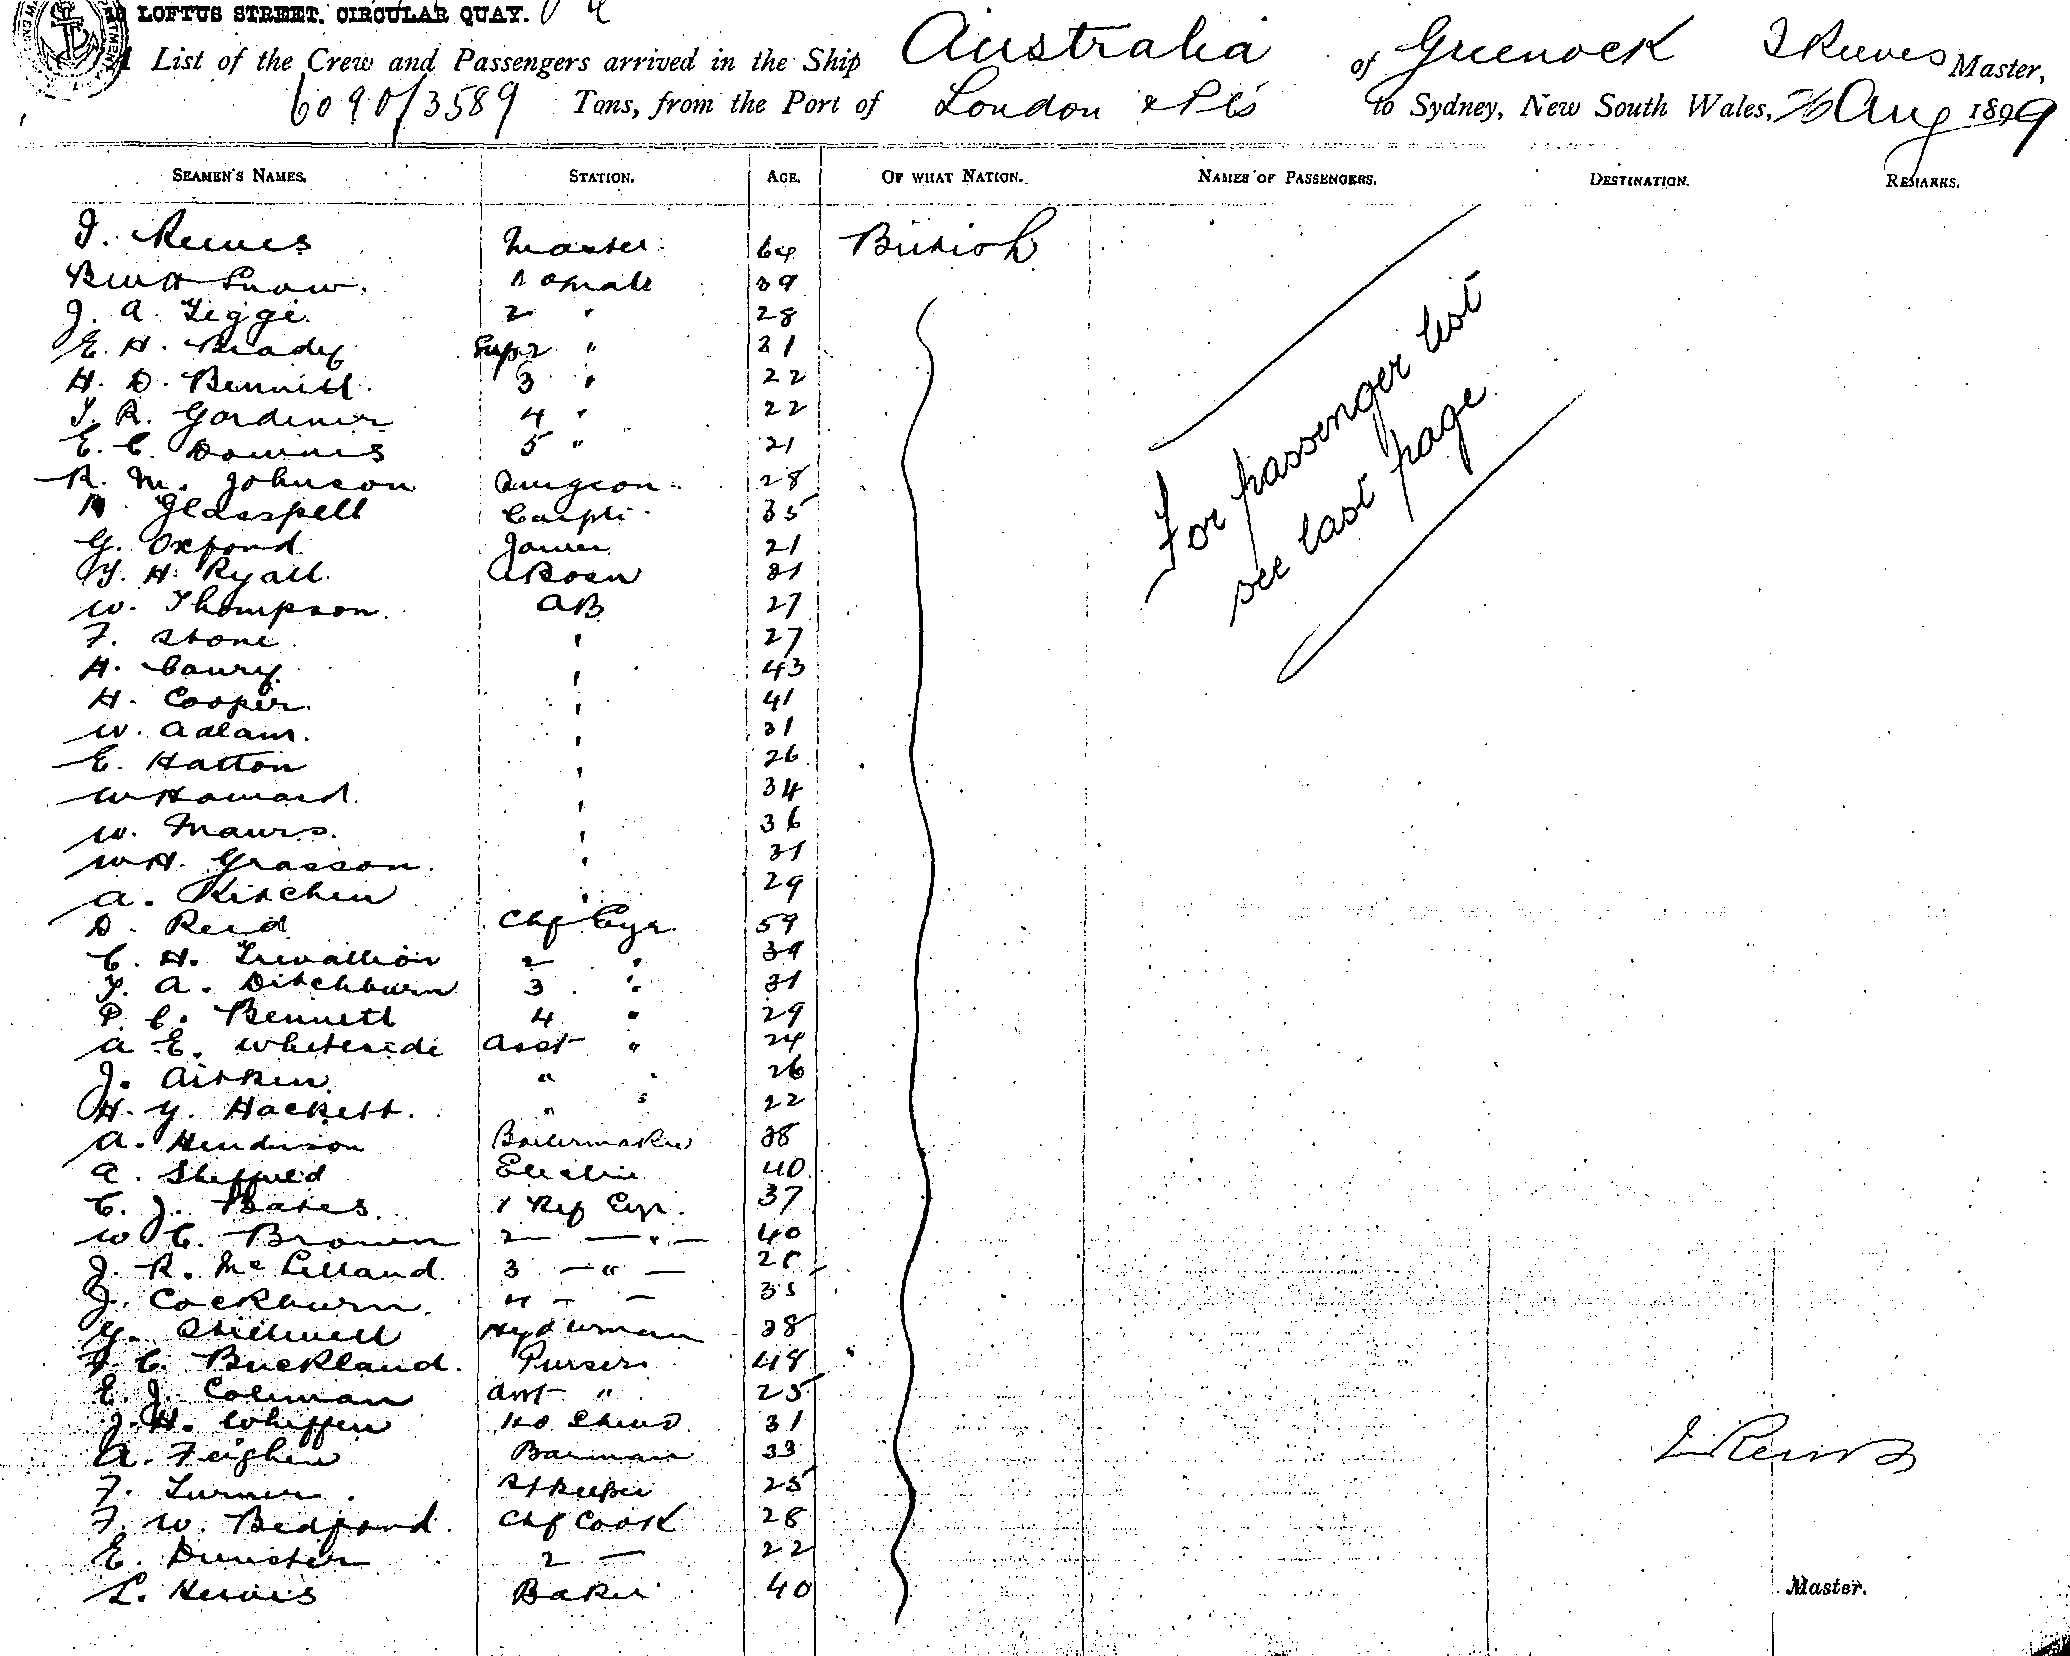 LOFTUS STREET, CIRCULAR QUAY.
A List of the Crew and Passengers arrived in the Ship Australia of Greenock I Reeves Master,
6090/3589 Tons, from the Port of London & Pts to Sydney, New South Wales, Aug 1899
SEAMEN'S NAMES. STATION. AGE. OF WHAT NATION. NAMES OF PASSENGERS. DESTINATION. REMARKS.
I. Reeves Master 64 British
Snow. 1 Mate 39
J. A. Tigge. 2 " 28
E. H. Brady Sup 2 " 31
H. D. Bennett. 3 " 22
T. R. Gardiner 4 " 22
E. C. Downes 5 " 21
R. M. Johnson Surgeon 28
Glasspell Carptr 35
G. Oxford Joiner 21
H. Ryall. Bosn 31
W. Thompson. AB 27
F. Stone " 27
H. " 43
H. Cooper. " 41
W. Adlam. " 31
E. Hatton " 26
W Howard. " 34
W. " 36
W H. Grasson. " 31
A. Kitchen " 29
D. Reid Chf Egr 59
C. H. Trevallion 2 " 39
A. Ditchburn 3 " 31
P. C. Bennett 4 " 29
A. E. Whiteside Asst " 24
J. Aitken " " 26
H. Y. Hackett. " " 22
A. Henderson Boilermaker 38
A. Sheffield Electric 40
C. J. Bates 1 Ref Egr. 37
W C. Brown 2 — " — 40
J. R. McLelland 3 — " —
J. Cockburn. 4 — — 35
G. Stillwell 38
C. Buckland. Purser 48
E. J. Coleman Asst " 25
J. H. Whiffen 31
A. Feighen Barman 33
F. Turner. Stkeeper 25
F. W. Bedford. Chf Cook 28
E. Dunster 2 — 22
L. Baker 40
For passenger list
see last page
I Reeves
Master.